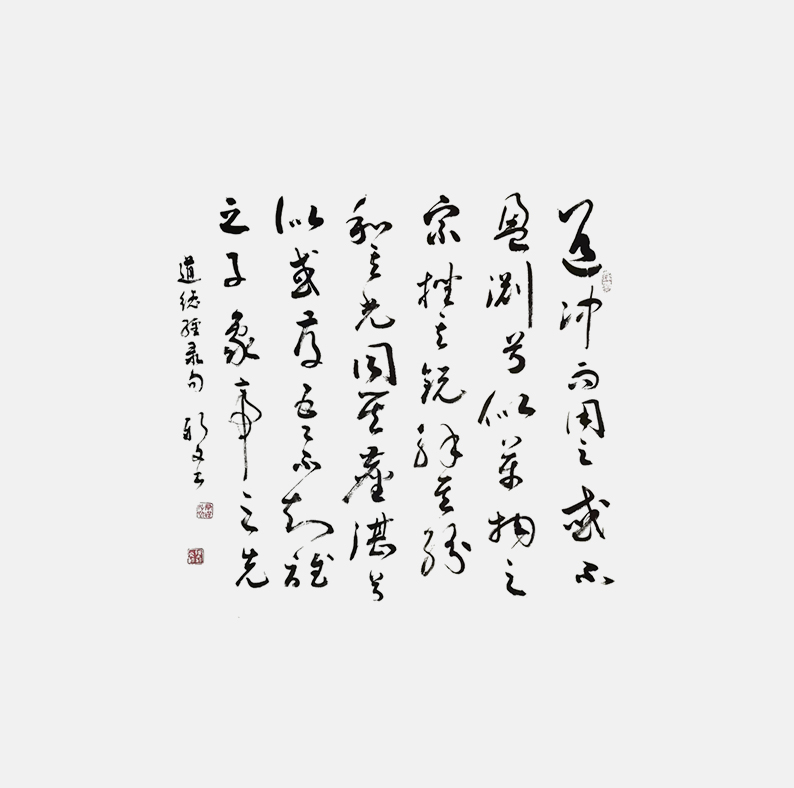 道沖而用之或不
盈淵兮似萬物之
宗挫其銳解其紛
和其光同其塵湛兮
似或存吾不知誰
之子象帝之先
道德經录句